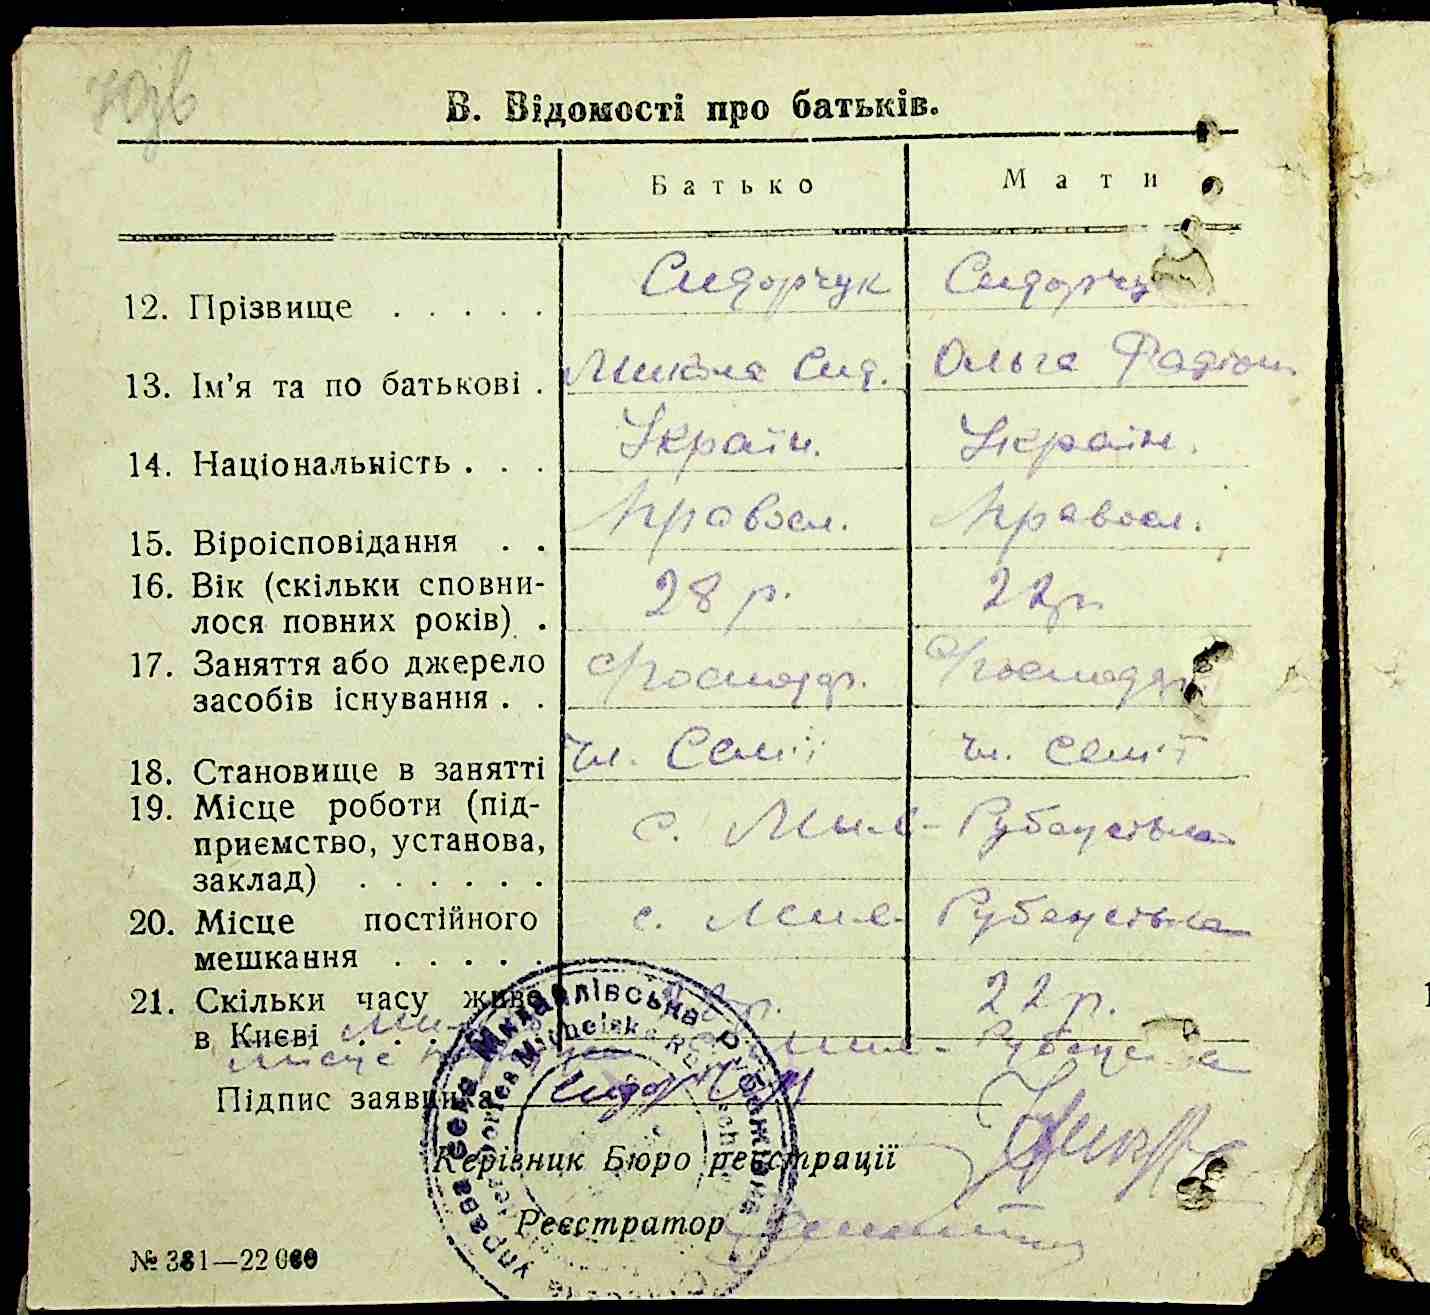 В. Відомості про батьків.
Батько Мати
12. Прізвище . . . . . Сидорчук Сидорчу
13. Ім'я та по батькові . Микола Сид. Ольга Фадіон.
14. Національність . . . Україн. Україн.
15. Віроісповідання . . Правосл. Правосл.
16. Вік (скільки сповни-
лося повних років) . 28 р. 22 р.
17. Заняття або джерело
засобів існування . . Господар. Господар
18. Становище в занятті чл. семії чл. семії
19. Місце роботи (під-
приємство, установа,
заклад) . . . . . . с. Мих.-Рубежівка
20. Місце постійного
мешкання . . . . . с. Мих.-Рубежівка
21. Скільки часу живе
в Києві . . . . 22 р.
Мих.-Рубежівка
Підпис заявника Сидорчук
Керівник Бюро реєстрації
Реєстратор
Михайлівська Рубежівка
управа села
№ 381—22 000